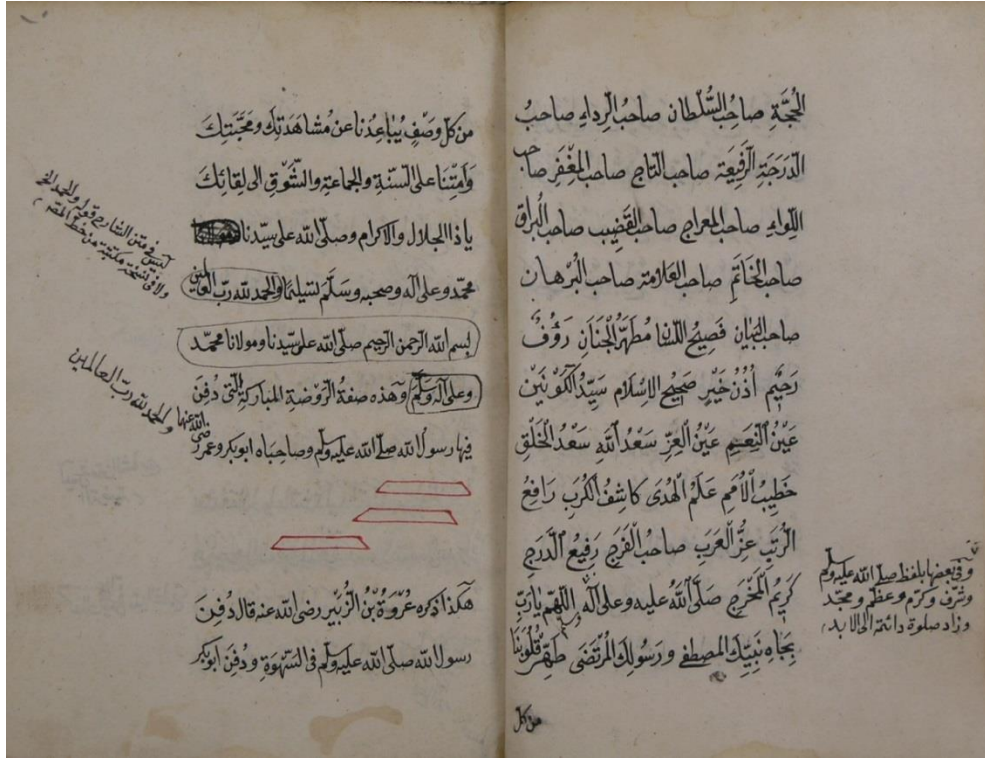 الْحُجَّةِ صاحِبُ السُّلْطان صاحبُ الرِداءِ صاحبُ
الدَرَجَةِ الرَفِيعَة صاحب التاج صاحب المِغْفَر صاحب
اللِّواءِ صاحب المعراج صاحب القَضِيب صاحب البُراق
صاحب الخَاتَمِ صاحب العَلامة صاحب البُرْهان
صاحب البَيَان فَصِيحُ اللّسان مُطَهَّرُ الجَنَانِ رَؤُفٌ
رَحِيْم أُذُنُ خَيْرٍ صَحِيحُ الاِسْلام سَيِّدُ الْكَوْنَيْنِ
عَيْنُ النَّعِيمِ عَيْنُ العِزِّ سَعْدُ اللَّهِ سَعْدُ الْخَلْقِ
خَطِيْبُ الْأُمَمِ عَلَمُ الْهُدَى كَاشِفُ الكُرَبِ رَافِعُ
الرُّتَبِ عِزُّ الْعَرَبِ صاحبُ الفَرَجِ رَفِيعُ الدَّرَجِ
كَرِيمُ الْمَخْرَجِ صَلَّى اللَّهُ عليه وعلى آله وسلم اللّهم يا رَبِّ
بِجَاهِ نَبِيِّكَ المصطفى ورسولك المُرْتَضَى طَهِّرْ قُلُوْبَنَا
من كل
وفى بعضها بلفظ صلى الله عليه وسلم
وشرف وكرم وعظم ومجد
وزاد صلوة دائمة الى الابد
من كلّ وَصْفٍ يُبَاعِدُنا عن مُشاهَدَتِكَ ومَحَبَّتِكَ
وَامِتْنَا على السّنة والجماعة والشَّوْق الى لِقائِكَ
يا ذا الجلال والاكرام وصلّى الله على سيّدنا
محمّد وعلى آله وصحبه وسَلَّمَ تسْلِيمًا والحمد لله ربّ العالمين
بسم الله الرّحمن الرّحيم صلّى الله على سيّدنا ومولانا محمّد
وعلى آله وسَلَّمَ وهذه صفةُ الرَّوْضةِ المباركة الّتى دُفِنَ
فيها رسولُ الله صلّى الله عليه وسلم وصاحباه ابوبكر وعمر رضى الله عنها
هٰكذا ذكره عُرْوَةُ بْنُ الزُّبَيْر رضى الله عنه قال دُفِنَ
رسولُ الله صلّى الله عليه وسلم فى السَّهْوَةِ ودُفِنَ ابوبكر
ليس فى متن الشارح قوله والحمد الخ
ولا فى نسخة مكتبة من خط المص
والحمد لله رب العالمين